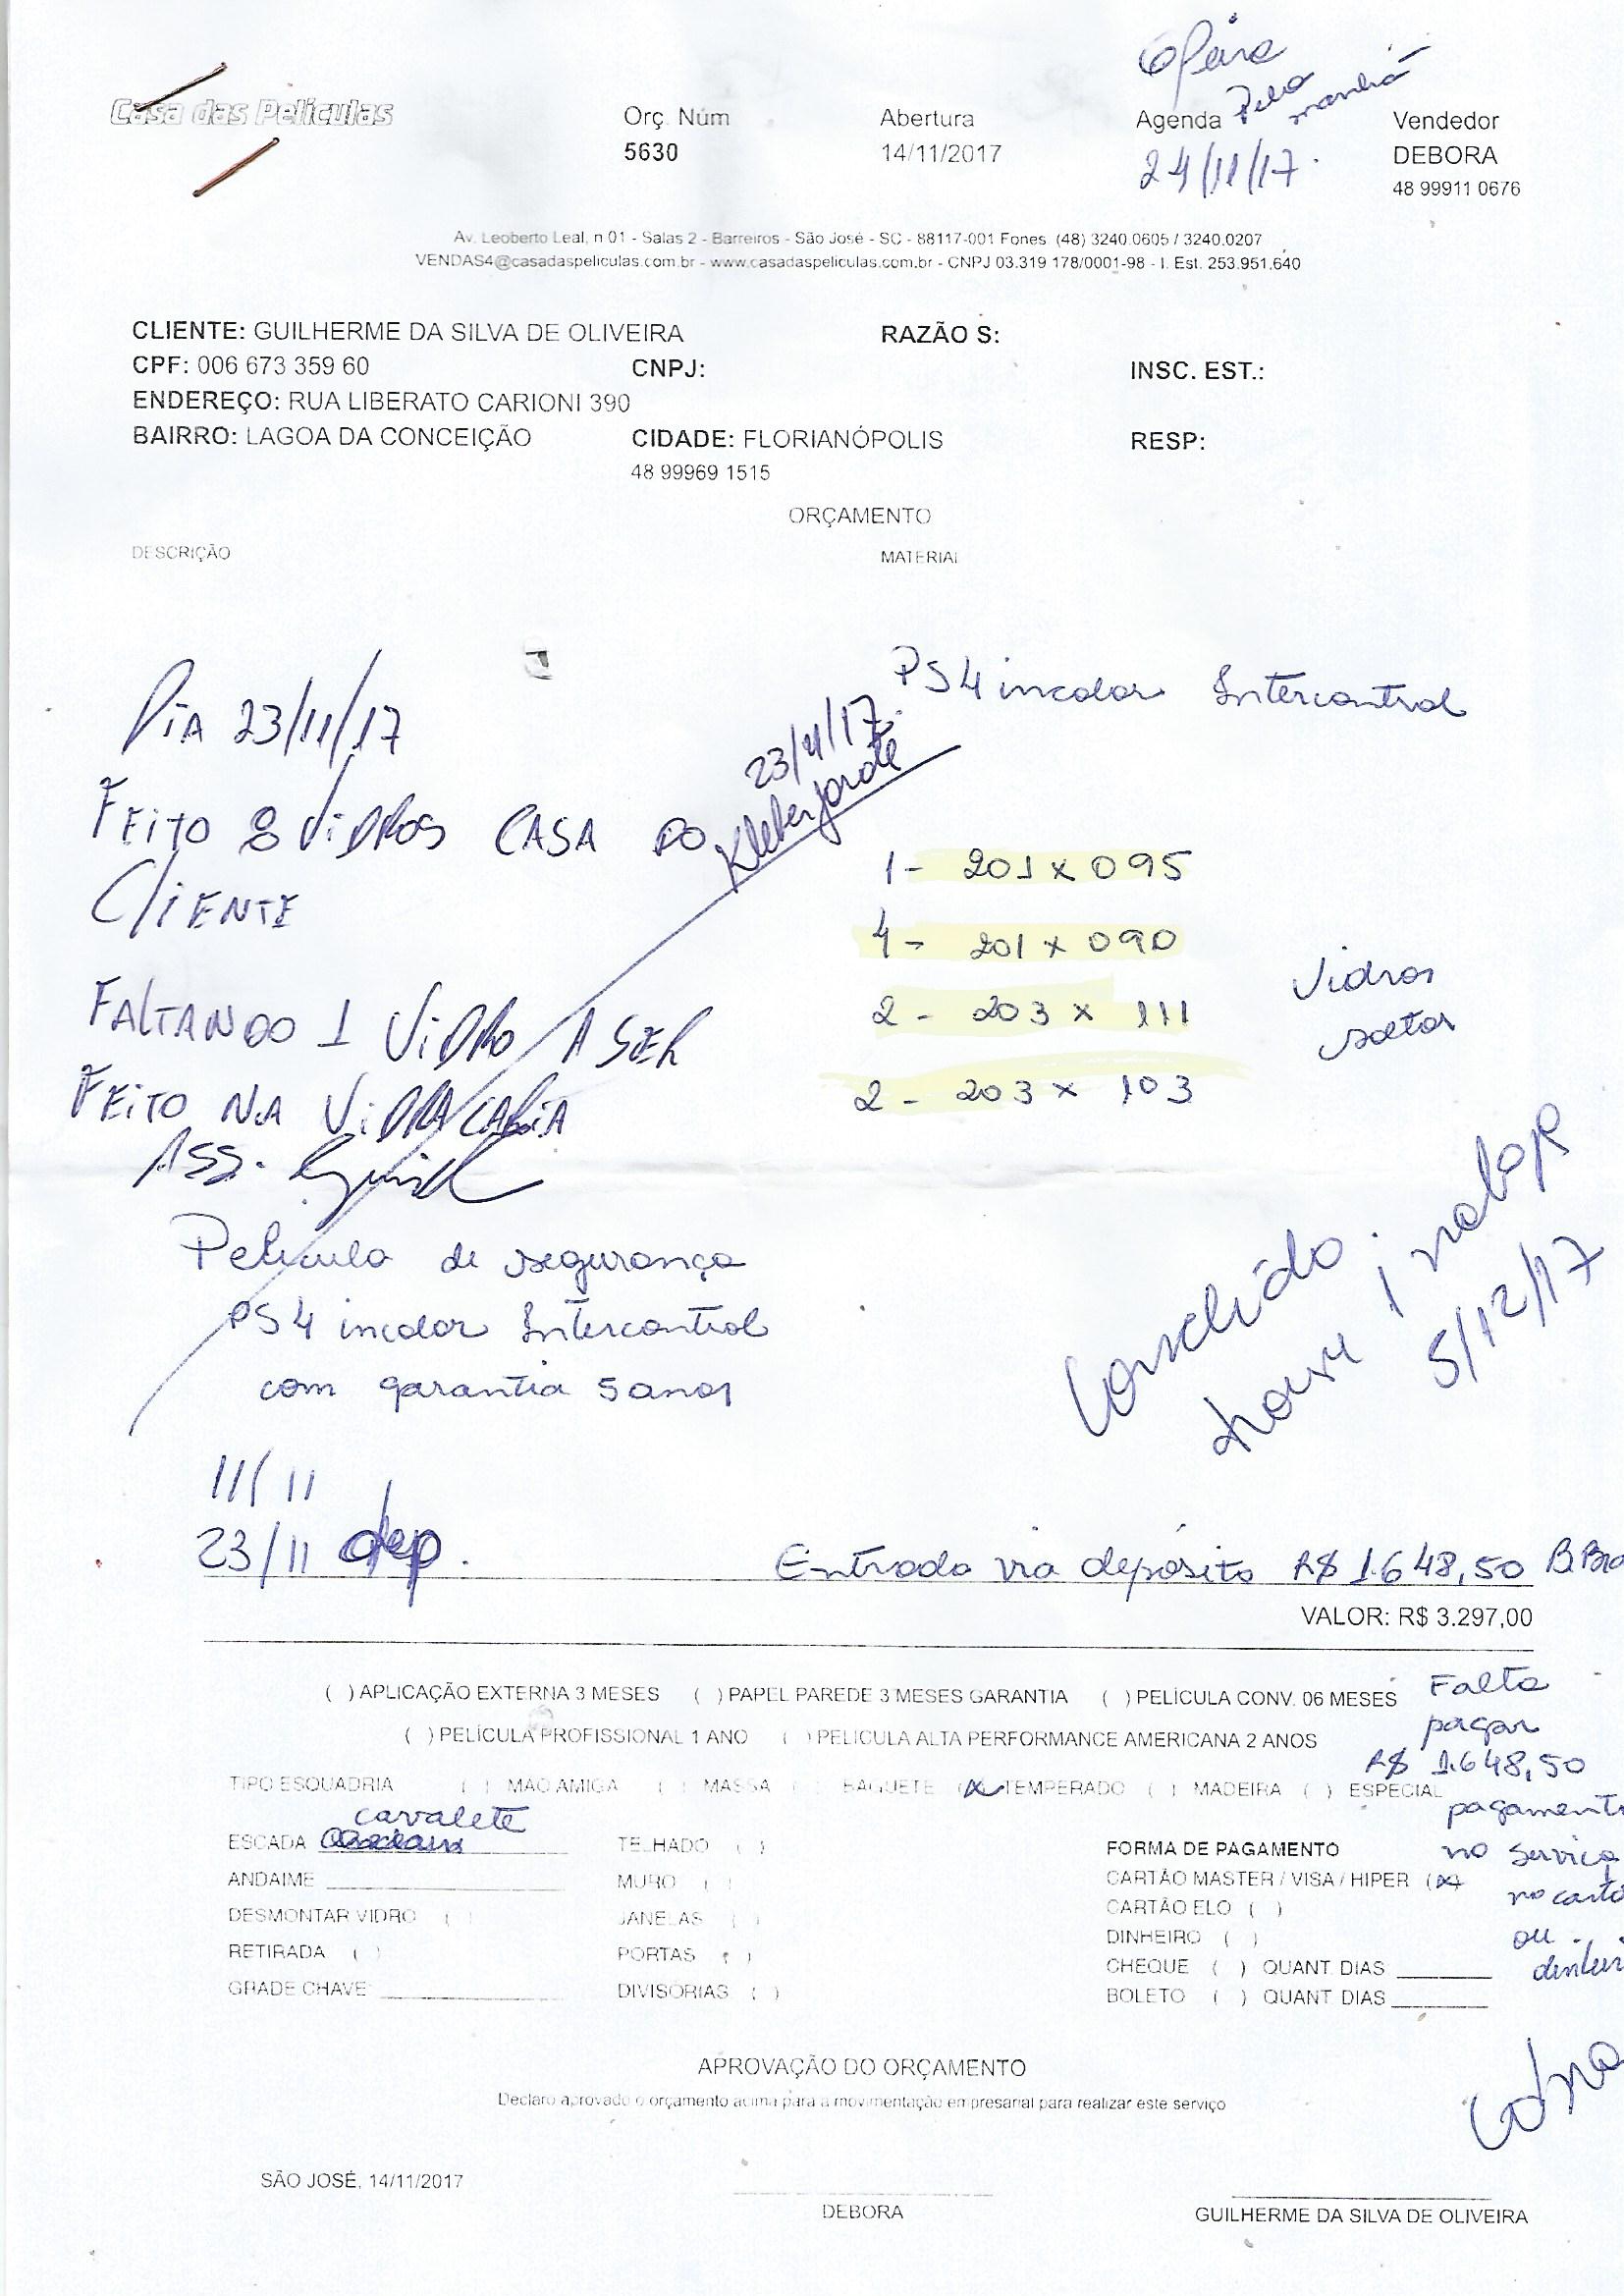 Casa das Películas
Orç. Núm
5630
Abertura
14/11/2017
Agenda Pela manhã
24/11/17.
Vendedor
DEBORA
48 99911 0676
Av. Leoberto Leal, n 01 - Salas 2 - Barreiros - São José - SC - 88117-001 Fones (48) 3240.0605 / 3240.0207
VENDAS4@casadaspeliculas.com.br - www.casadaspeliculas.com.br - CNPJ 03.319 178/0001-98 - I. Est. 253.951.640
CLIENTE: GUILHERME DA SILVA DE OLIVEIRA RAZÃO S:
CPF: 006 673 359 60 CNPJ: INSC. EST.:
ENDEREÇO: RUA LIBERATO CARIONI 390
BAIRRO: LAGOA DA CONCEIÇÃO CIDADE: FLORIANÓPOLIS RESP:
48 99969 1515
ORÇAMENTO
DESCRIÇÃO MATERIAL
PS4 incolor Intercontrol
DiA 23/11/17
23/11/17.
FEITO 8 ViDROS CASA DO
CLiENTE
1- 201 x 095
4- 201 x 090
2- 203 x 111
2- 203 x 103
Vidros
soltos
FALTANDO 1 ViDRO A SER
FEITO NA ViDRACARiA
ASS.
Pelicula de segurança
PS4 incolor Intercontrol
com garantia 5 anos
Concluido
5/12/17
11/11
23/11 dep.
Entrada via depósito R$ 1.648,50
VALOR: R$ 3.297,00
( ) APLICAÇÃO EXTERNA 3 MESES ( ) PAPEL PAREDE 3 MESES GARANTIA ( ) PELÍCULA CONV. 06 MESES
( ) PELÍCULA PROFISSIONAL 1 ANO ( ) PELICULA ALTA PERFORMANCE AMERICANA 2 ANOS
Falta
pagar
R$ 1.648,50
pagamento
no serviço
no cartã
ou
TIPO ESQUADRIA ( ) MAO AMIGA ( ) MASSA ( ) BAGUETE (X) TEMPERADO ( ) MADEIRA ( ) ESPECIAL
cavalete
ESCADA
ANDAIME
DESMONTAR VIDRO ( )
RETIRADA ( )
GRADE CHAVE
TELHADO ( )
MURO ( )
JANELAS ( )
PORTAS ( )
DIVISORIAS ( )
FORMA DE PAGAMENTO
CARTÃO MASTER / VISA / HIPER (X)
CARTÃO ELO ( )
DINHEIRO ( )
CHEQUE ( ) QUANT. DIAS
BOLETO ( ) QUANT. DIAS
APROVAÇÃO DO ORÇAMENTO
Declaro aprovado o orçamento acima para a movimentação empresarial para realizar este serviço
SÃO JOSÉ, 14/11/2017
DEBORA
GUILHERME DA SILVA DE OLIVEIRA